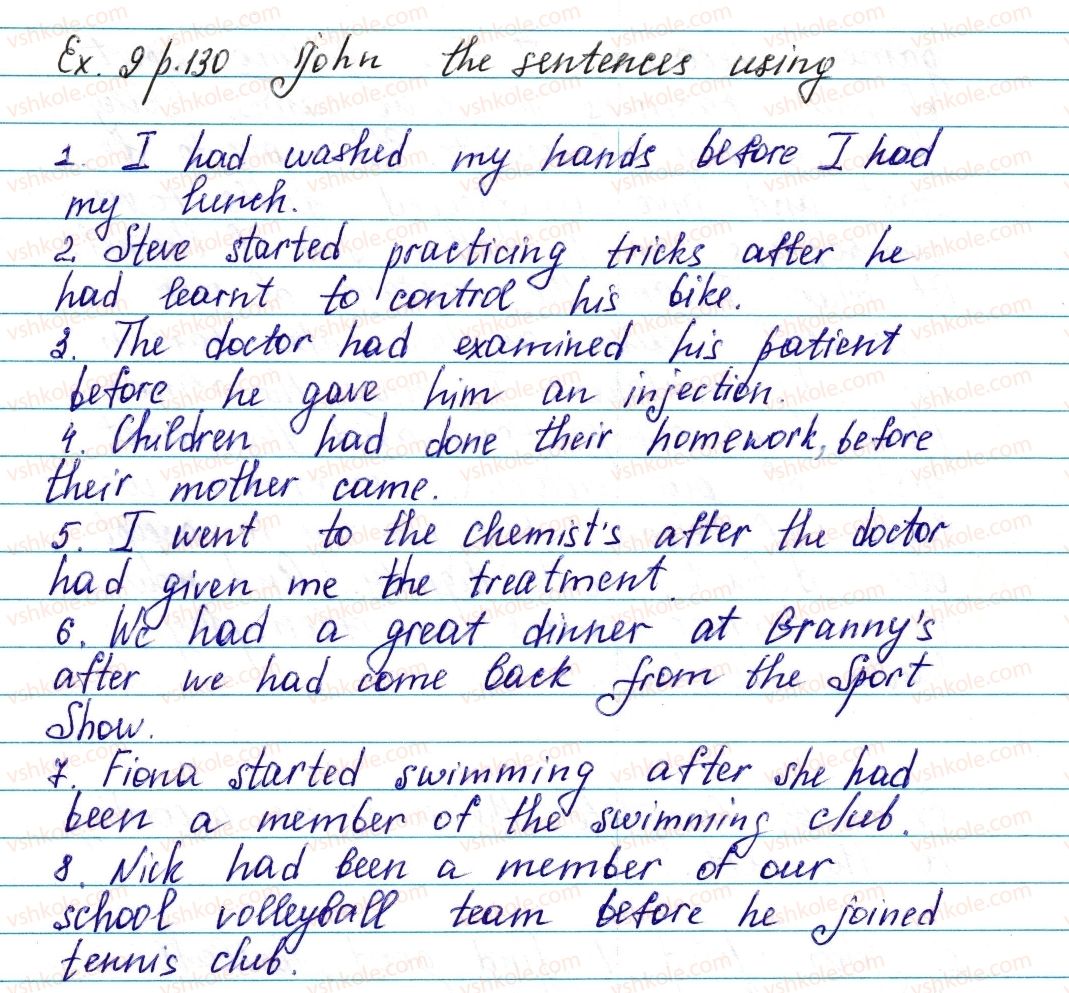 Ex. 9 p.130 John the sentences using
1. I had washed my hands before I had
my lunch.
2. Steve started practicing tricks after he
had learnt to control his bike.
3. The doctor had examined his patient
before he gave him an injection.
4. Children had done their homework, before
their mother came.
5. I went to the chemist's after the doctor
had given me the treatment.
6. We had a great dinner at Granny's
after we had come back from the Sport
Show.
7. Fiona started swimming after she had
been a member of the swimming club.
8. Nick had been a member of our
school volleyball team before he joined
tennis club.
vshkole.com